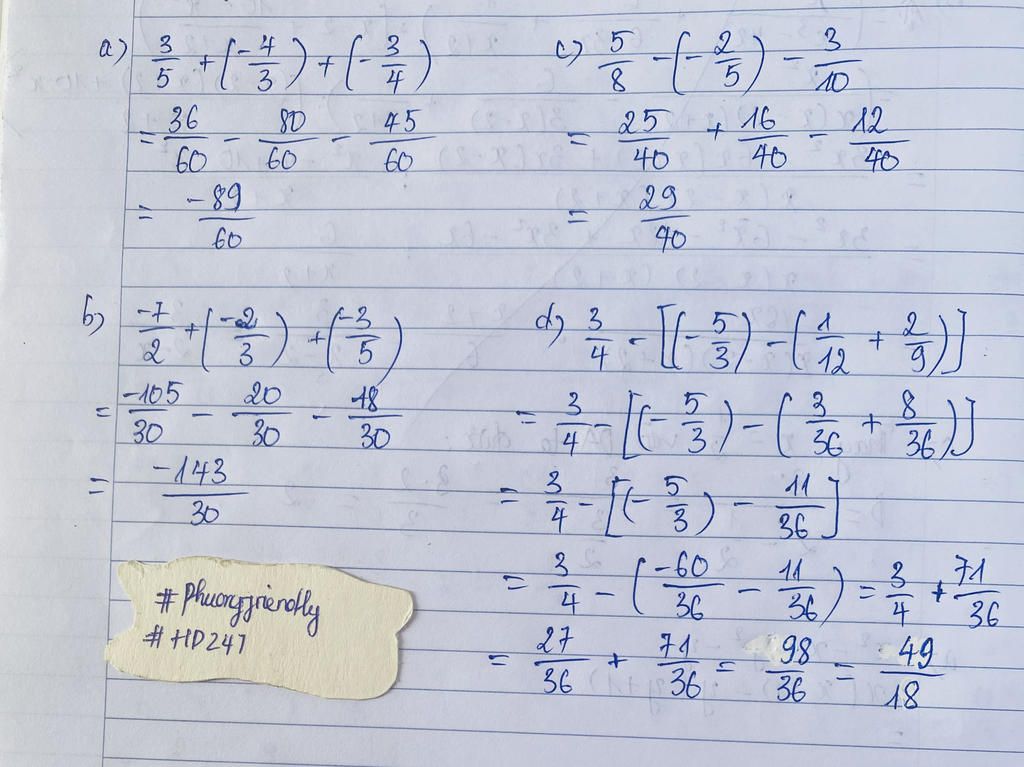 a) 3/5 + (-4/3) + (-3/4)
= 36/60 - 80/60 - 45/60
= -89/60
c) 5/8 - (-2/5) - 3/10
= 25/40 + 16/40 - 12/40
= 29/40
b) -7/2 + (-2/3) + (-3/5)
= -105/30 - 20/30 - 18/30
= -143/30
d) 3/4 - [(-5/3) - (1/12 + 2/9)]
= 3/4 - [(-5/3) - (3/36 + 8/36)]
= 3/4 - [(-5/3) - 11/36]
= 3/4 - (-60/36 - 11/36) = 3/4 + 71/36
= 27/36 + 71/36 = 98/36 = 49/18
#HD247